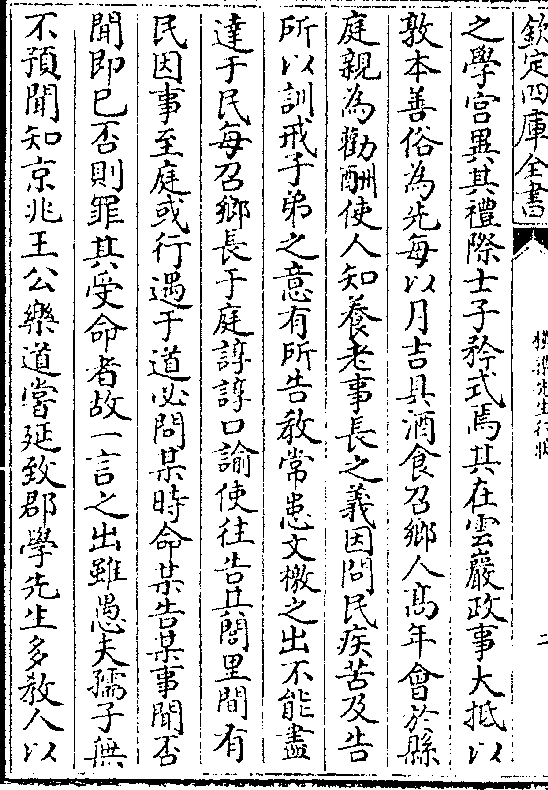 欽定四庫全書
橫渠先生行狀
二
之學宮異其禮際士子矜式焉其在雲巖政事大抵以
敦本善俗為先每以月吉具酒食召鄉人高年會於縣
庭親為勸酬使人知養老事長之義因問民疾苦及告
所以訓戒子弟之意有所告教常患文檄之出不能盡
達于民每召鄉長于庭諄諄口諭使往告其閭里間有
民因事至庭或行遇于道必問某時命某告某事聞否
聞即已否則罪其受命者故一言之出雖愚夫孺子無
不預聞知京兆王公樂道嘗延致郡學先生多教人以